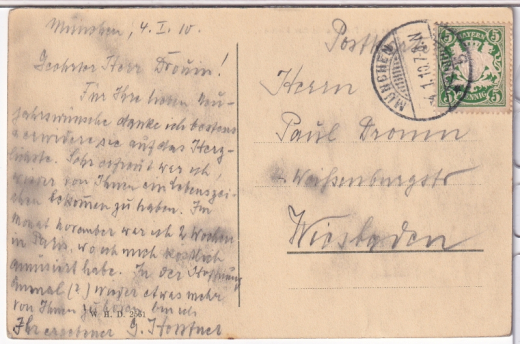 München, 4. I. 10.
Geehrter Herr Dromm!
Für Ihre lieben Neu-
jahrswünsche danke ich bestens
u. erwidere sie auf das Herz-
lichste. Sehr erfreut war ich,
wieder von Ihnen ein Lebenszei-
chen bekommen zu haben. Im
Monat November war ich 2 Wochen
in Paris, wo ich mich köstlich
amüsiert habe. In der Hoffnung
einmal (?) wieder etwas mehr
von Ihnen zu hören bin ich
Ihr ergebener G.
W. H. D. 2561
Postkarte
MÜNCHEN
4. 1. 10. 7-8 N
BAYERN
5
5
5
5
PFENNIG
Herrn
Paul Dromm
Weißenburgstr
Wiesbaden